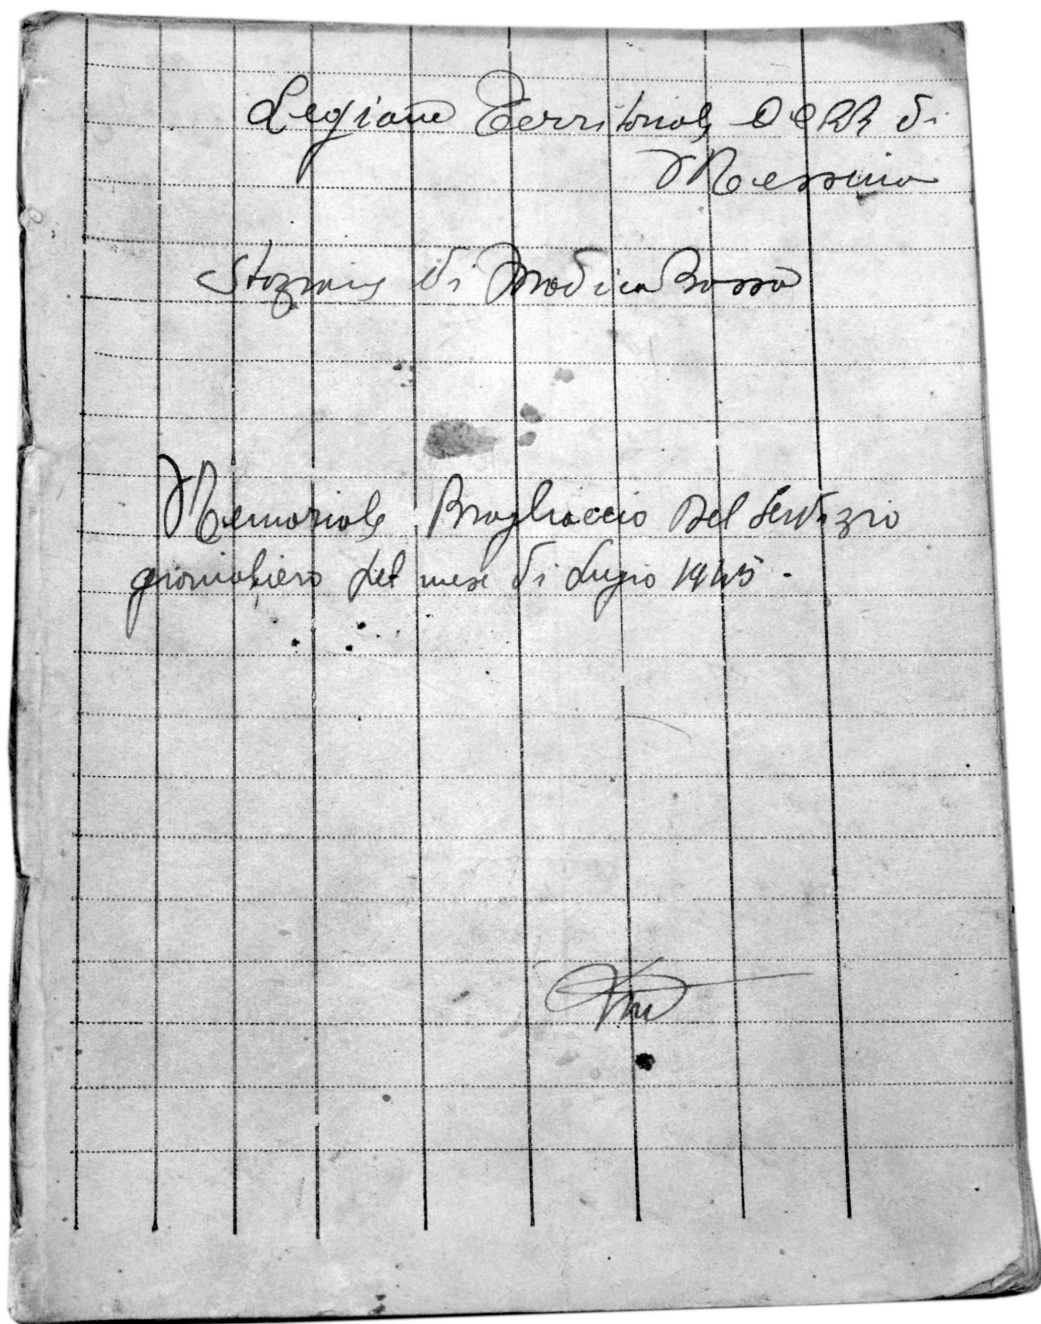 Legione Territoriale CC RR di
Messina
Stazione di Modica Bassa
Memoriale Brogliaccio del Servizio
giornaliero del mese di Luglio 1945.